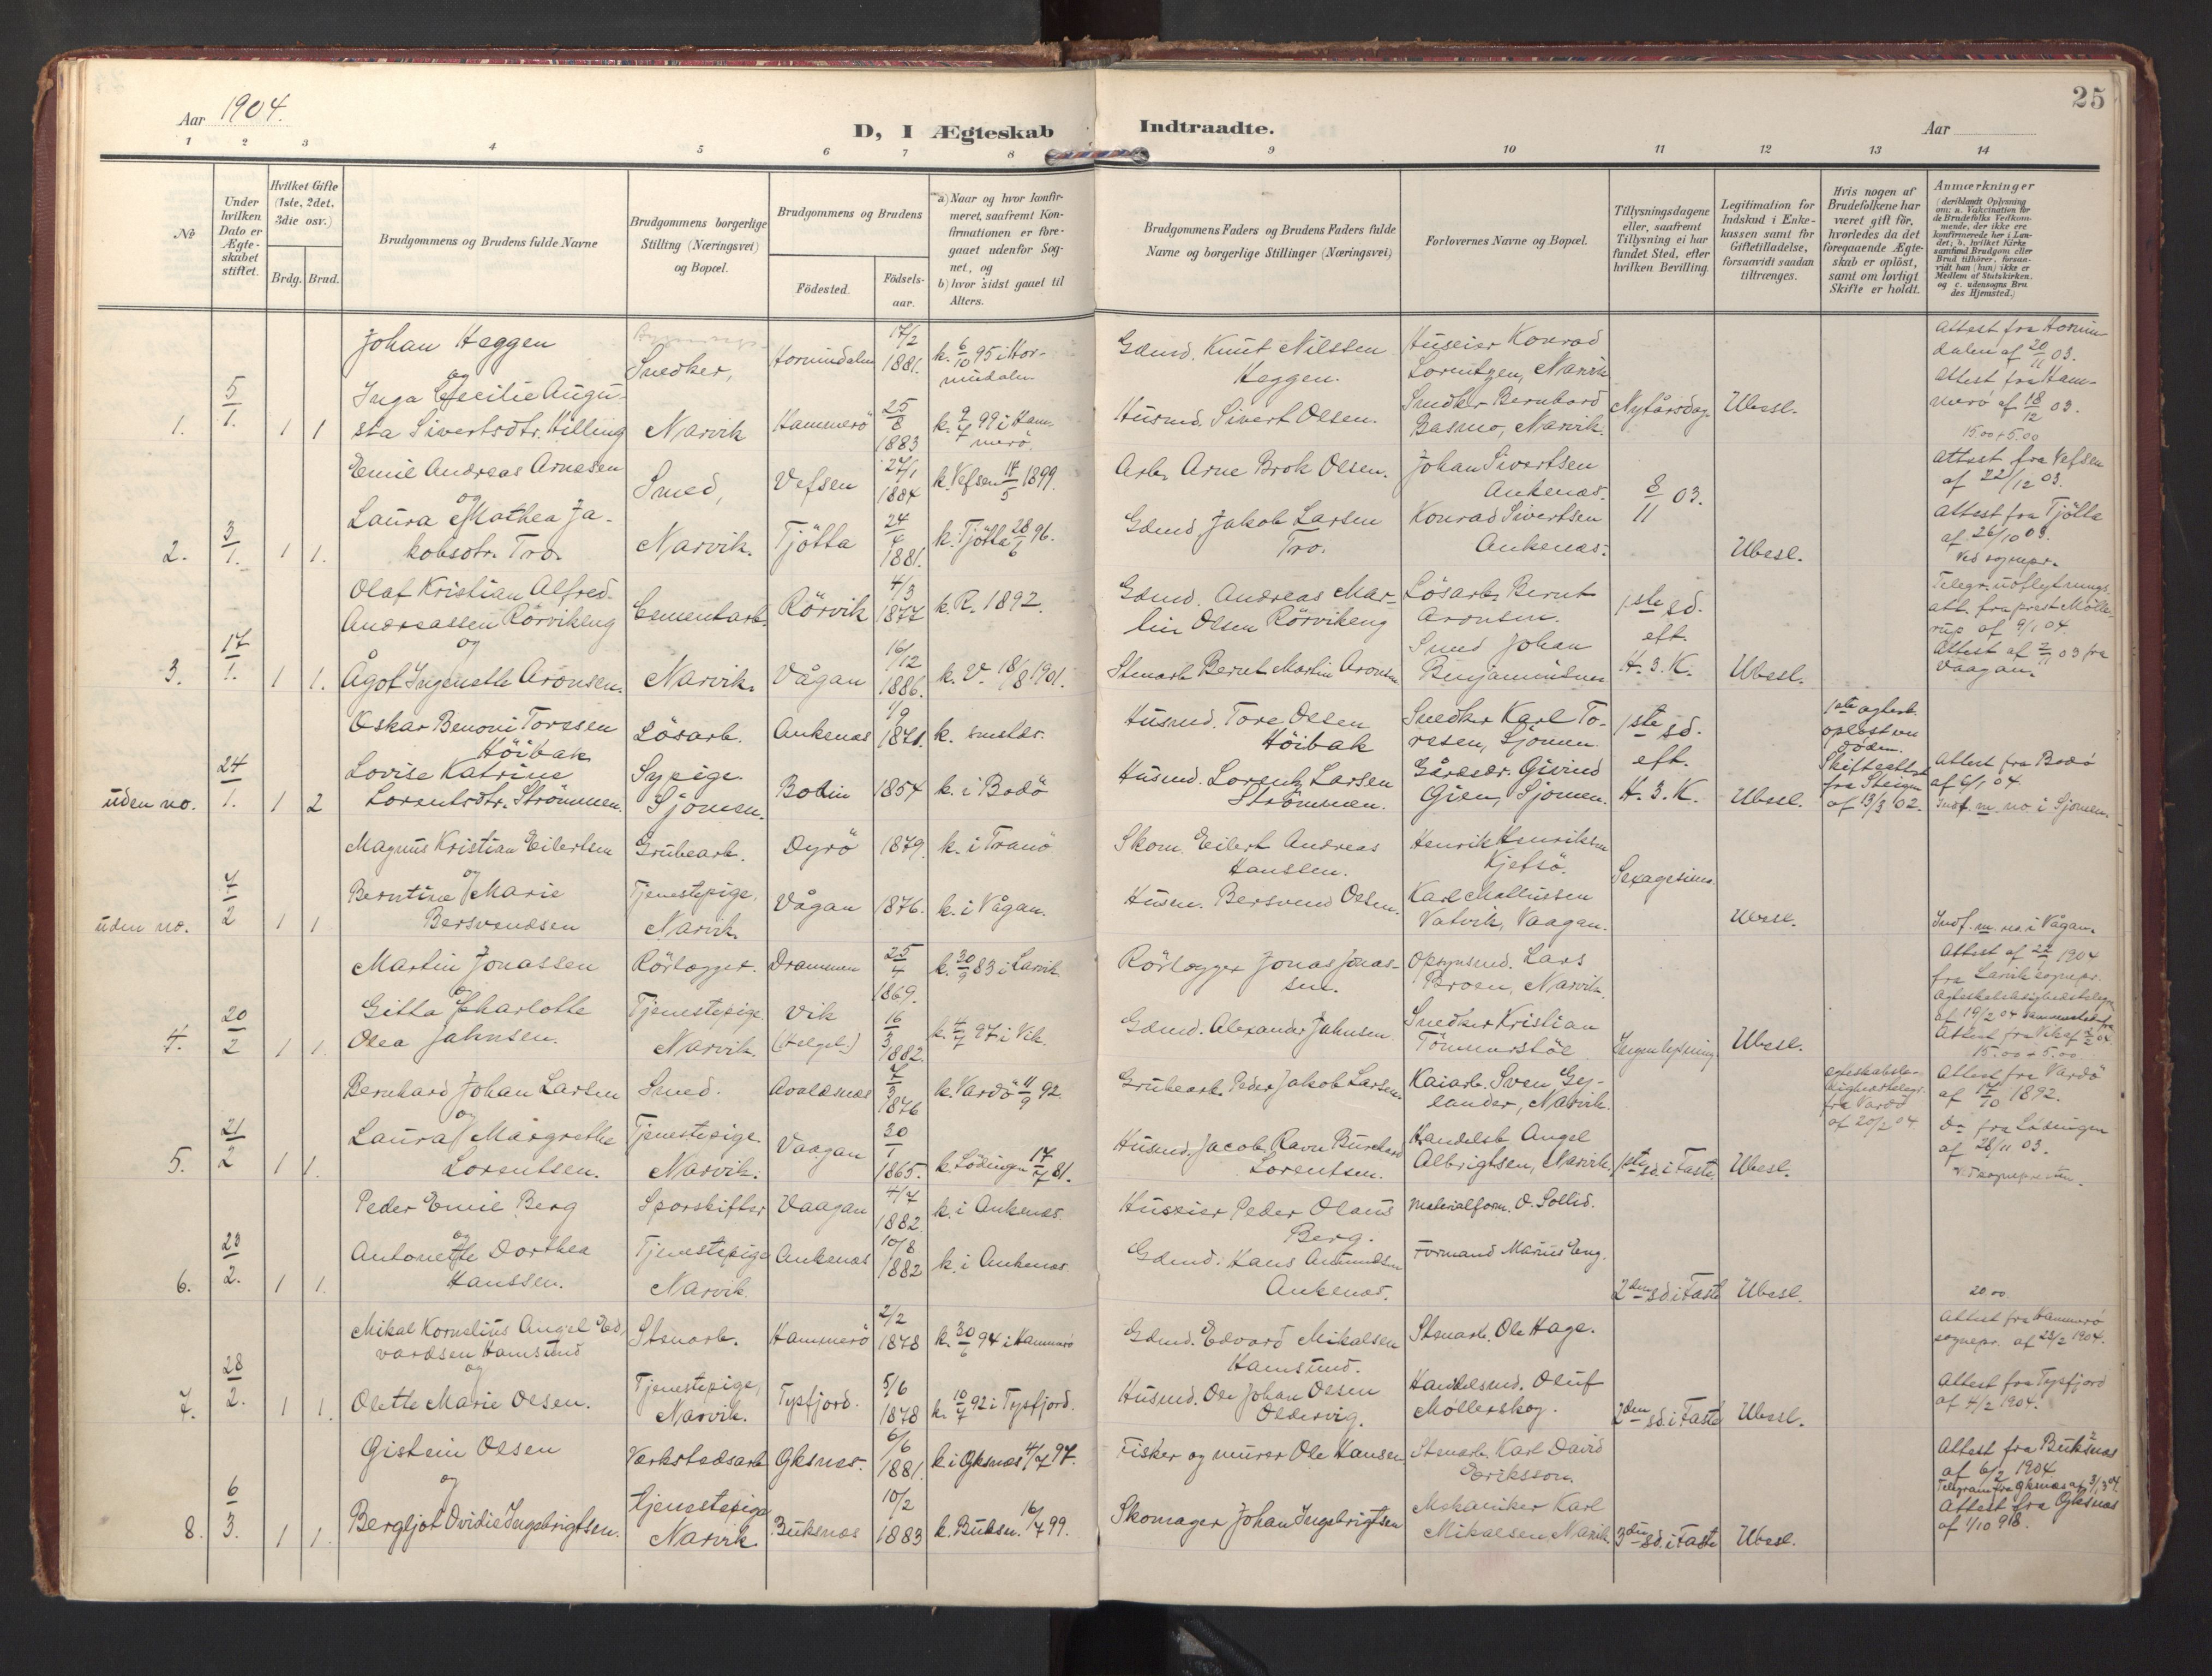 25
Aar 1904.
D, I Ægteskab Indtraadte.
Aar
1 2 3 4 5 6 7 8 9 10 11 12 13 14
No
Under hvilken Dato er Ægteskabet stiftet.
Hvilket Gifte (1ste, 2det, 3die osv.)
Brdg. Brud.
Brudgommens og Brudens fulde Navne
Brudgommens borgerlige Stilling (Næringsvei) og Bopæl.
Brudgommens og Brudens
Födested.
Födsels-aar.
a) Naar og hvor konfirmeret, saafremt Konfirmationen er foregaaet udenfor Sognet, og
b) hvor sidst gaaet til Alters.
Brudgommens Faders og Brudens Faders fulde Navne og borgerlige Stillinger (Næringsvei)
Forlovernes Navne og Bopæl.
Tillysningsdagene eller, saafremt Tillysning ei har fundet Sted, efter hvilken Bevilling.
Legitimation for Indskud i Enkekassen samt for Giftetilladelse, forsaavidt saadan tiltrænges.
Hvis nogen af Brudefolkene har været gift för, hvorledes da det foregaaende Ægteskab er oplöst, samt om lovligt Skifte er holdt.
Anmærkninger (deriblandt Oplysning om: a. Vakcination for de Brudefolks Vedkommende, der ikke ere konfirmerede her i Landet; b. hvilket Kirkesamfund Brudgom eller Brud tilhörer, forsaavidt han (hun) ikke er Medlem af Statskirken, og c. udensogns Brudes Hjemsted.)
1. 5/1. 1 1
Johan Heggen
og
Inga Cecilie Augusta Sivertsdtr. Hilling
Snedker,
Narvik
Hornindalen
Hammerö
17/2 1881.
25/8 1883
k. 6/10 95 i Hornindalen.
k. 2/7 99 i Hammerö.
Gdmd. Knut Nilssen Heggen.
Husmd. Sivert Olsen.
Huseier Konrad Lorentzen, Narvik
Snedker Bernhard Basmo, Narvik.
Nytårsdag.
Ubesl.
Attest fra Hornindalen af 20/11 03.
Attest fra Hammerö af 18/12 03.
15.00 + 5.00
2. 3/1. 1 1.
Emil Andreas Arnesen
og
Laura Mathea Jakobsdtr. Tro.
Smed,
Narvik.
Vefsen
Tjötta
27/1 1884
24/4 1881.
k. Vefsen 14/5 1899.
k. Tjötta 28/6 96.
Arb. Arne Brok Olsen.
Gdmd. Jakob Larsen Tro.
Johan Sivertsen Ankenæs.
Konrad Sivertsen Ankenæs.
8/11 03.
Ubesl.
Attest fra Vefsen af 22/12 03.
Attest fra Tjötta af 26/10 03.
Ved sognepr.
3. 17/1. 1 1.
Olaf Kristian Alfred Andreassen Rörvikeng
og
Ågot Ingenette Aronsen.
Cementarb.
Narvik.
Rörvik
Vågan
4/3 1877
16/12 1886.
k. R. 1892.
k. V. 18/8 1901.
Gdmd. Andreas Marlin Olsen Rörvikeng
Stenarb Bernt Martin Aronsen
Lösarb. Bernt Aronsen.
Smed Johan Benjaminsen
1ste sd. eft. H. 3. K.
Ubesl.
Telegr. udflytningsatt. fra prest Möllerup af 9/1 04.
Attest af 2/11 03 fra Vaagan.
uden no. 24/1. 1 2
Oskar Benoni Toresen Höibak
Lovise Katrine Lorentsdtr. Strömmen.
Lösarb.
Sypige. Sjomen.
Ankenæs
Bodin
1/9 1871.
1854
k. smstds.
k. i Bodö
Husmd. Tore Olsen Höibak
Husmd. Lorentz Larsen Strömmen.
Snedker Karl Toresen, Sjomen.
Gårdbr. Eivind Gien, Sjomen.
1ste sd. eft. H. 3. K.
Ubesl.
1ste ægtesk. oplöst ved döden. Skifteattest fra Steigen af 13/3 02.
Attest fra Bodö af 6/1 04.
Indf. m. no. i Sjomen.
uden no. 7/2 1 1
Magnus Kristian Eilertsen
og
Berntine Marie Bersvendsen
Grubearb.
Tjenestepige. Narvik.
Dyrö
Vågan
1879.
1876.
k. i Tranö
k. i Vågan.
Skom. Eilert Andreas Hanssen.
Husm. Bersvend Olsen.
Henrik Henriksen Kjefsö.
Karl Mathissen Vatvik, Vaagan.
Sexagesima.
Ubesl.
Indf. m. no. i Vågan.
4. 20/2 1 1.
Martin Jonassen
og
Gitta Charlotte Olea Jahnsen.
Rörlægger.
Tjenestepige. Narvik.
Drammen
Vik (Helgel.)
25/4 1869.
16/3 1882.
k. 30/9 83 i Larvik
k. 4/7 97 i Vik.
Rörlægger Jonas Jonassen.
Gdmd. Alexander Jahnsen
Opsynsmd. Lars Broen, Narvik.
Snedker Kristian Tömmerstöl
Ingen lysning
Ubesl.
Attest af 22/1 1904 fra Larvik sognepr.
af 19/2 04
Attest fra Vik af 04.
15.00 + 5.00
5. 21/2 1 1.
Bernhard Johan Larsen
og
Laura Margrethe Lorentsen.
Smed.
Tjenestepige. Narvik.
Avaldsnes
Vaagan
7/3 1876
30/1 1865.
k. Vardö 11/9 92.
k. Lödingen 17/7 81.
Grubearb. Peder Jakob Larsen
Husmd. Jacob Ravn Burchard Lorentsen.
Kaiarb. Sven Gylander, Narvik.
Handelsb. Angel Albrigtsen, Narvik.
1ste sd. i Faste
Ubesl.
fra Vardö af 20/2 04
Attest fra Vardö af 17/10 1892.
Do fra Lödingen af 28/11 03.
V. Sognepresten.
6. 23/2. 1 1.
Peder Emil Berg
og
Antonette Dorthea Hanssen.
Sporskifter
Tjenestepige Narvik.
Vaagan
Ankenæs
4/7 1882.
10/8 1882
k. i Ankenæs.
k. i Ankenæs
Huseier Peder Olaus Berg.
Gdmd. Hans Amundsen Ankenæs.
Materialform. O. Sollid.
Formand Marius Eng.
2den sd i Faste
Ubesl.
20.00
7. 28/2. 1 1.
Mikal Kornelius Angel Edvardsen Hamsund
og
Olette Marie Olsen.
Stenarb.
Tjenestepige, Narvik.
Hammerö
Tysfjord.
2/2 1878
5/6 1878
k. 30/6 94 i Hammerö
k. 10/7 92 i Tysfjord.
Gdmd. Edvard Mikalsen Hamsund.
Husmd. Ole Johan Olsen Oldervig.
Stenarb. Ole Hage.
Handelsmd. Oluf Möllerskog.
2den sd. i Faste
Ubesl.
Attest fra Hammerö sognepr. af 23/2 1904.
Attest fra Tysfjord af 4/2 1904.
8. 6/3. 1 1.
Gistein Olsen
og
Bergljot Ovidie Ingebrigtsen.
Værkstedsarb
Tjenestepige Narvik
Öksnes.
Buksnes
6/6 1881.
10/2 1883
k. i Öksnes 4/7 97.
k. Buksn. 16/7 99.
Fisker og murer Ole Hansen
Skomager Johan Ingebrigtsen
Stenarb. Karl David Eriksson.
Mekaniker Karl Mikaelsen, Narvik.
3die sd. i Faste
Ubesl.
Attest fra Buksnes af 6/2 1904.
Telegram fra Öksnes af 3/3 04.
Attest fra Öksnes af 1/10 98.